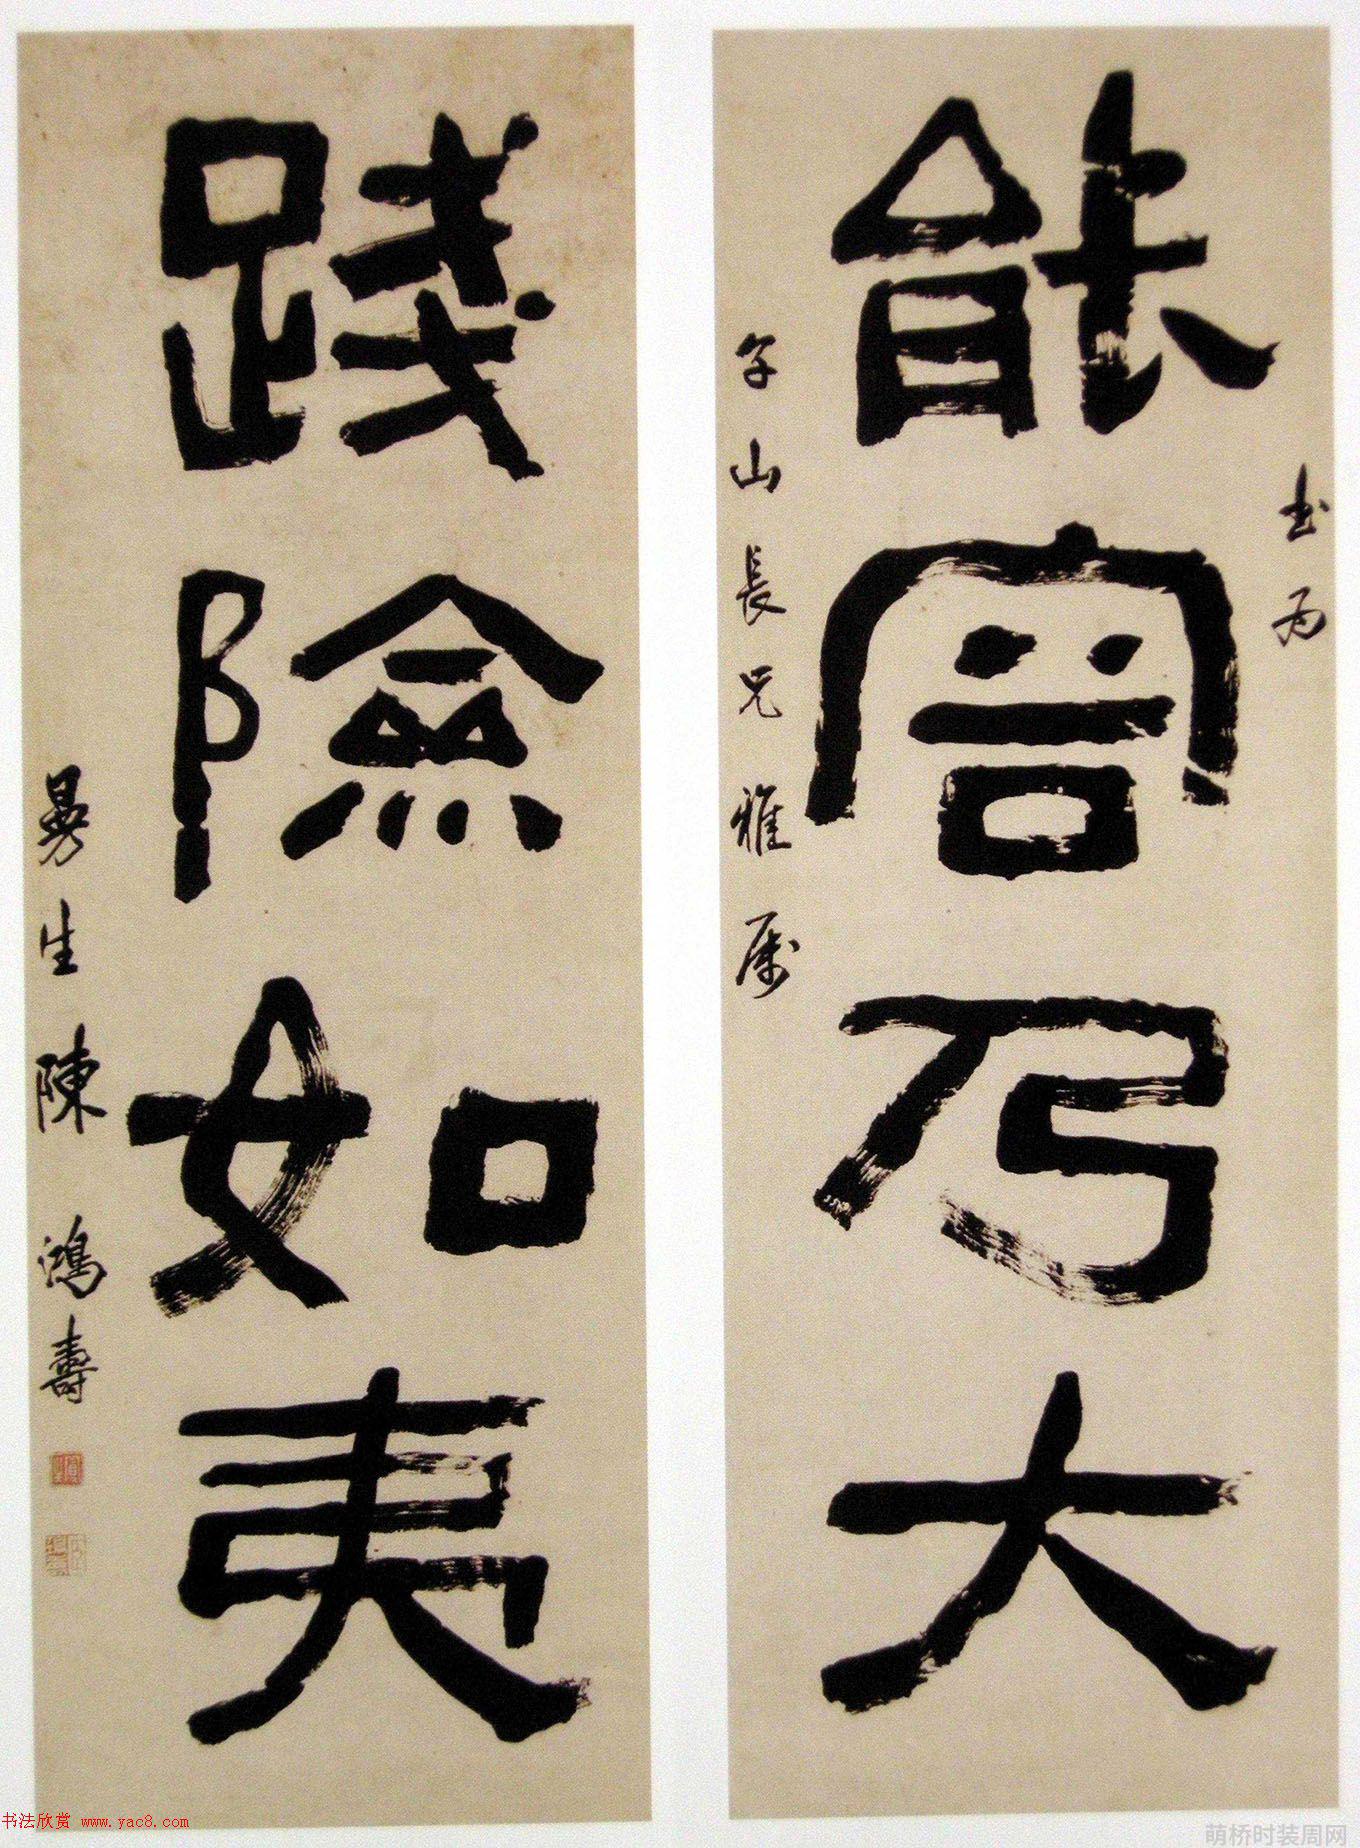 書為
能容乃大
午山長兄雅屬
踐險如夷
曼生陳鴻壽
书法欣赏 www.yac8.com
萌桥时装周网